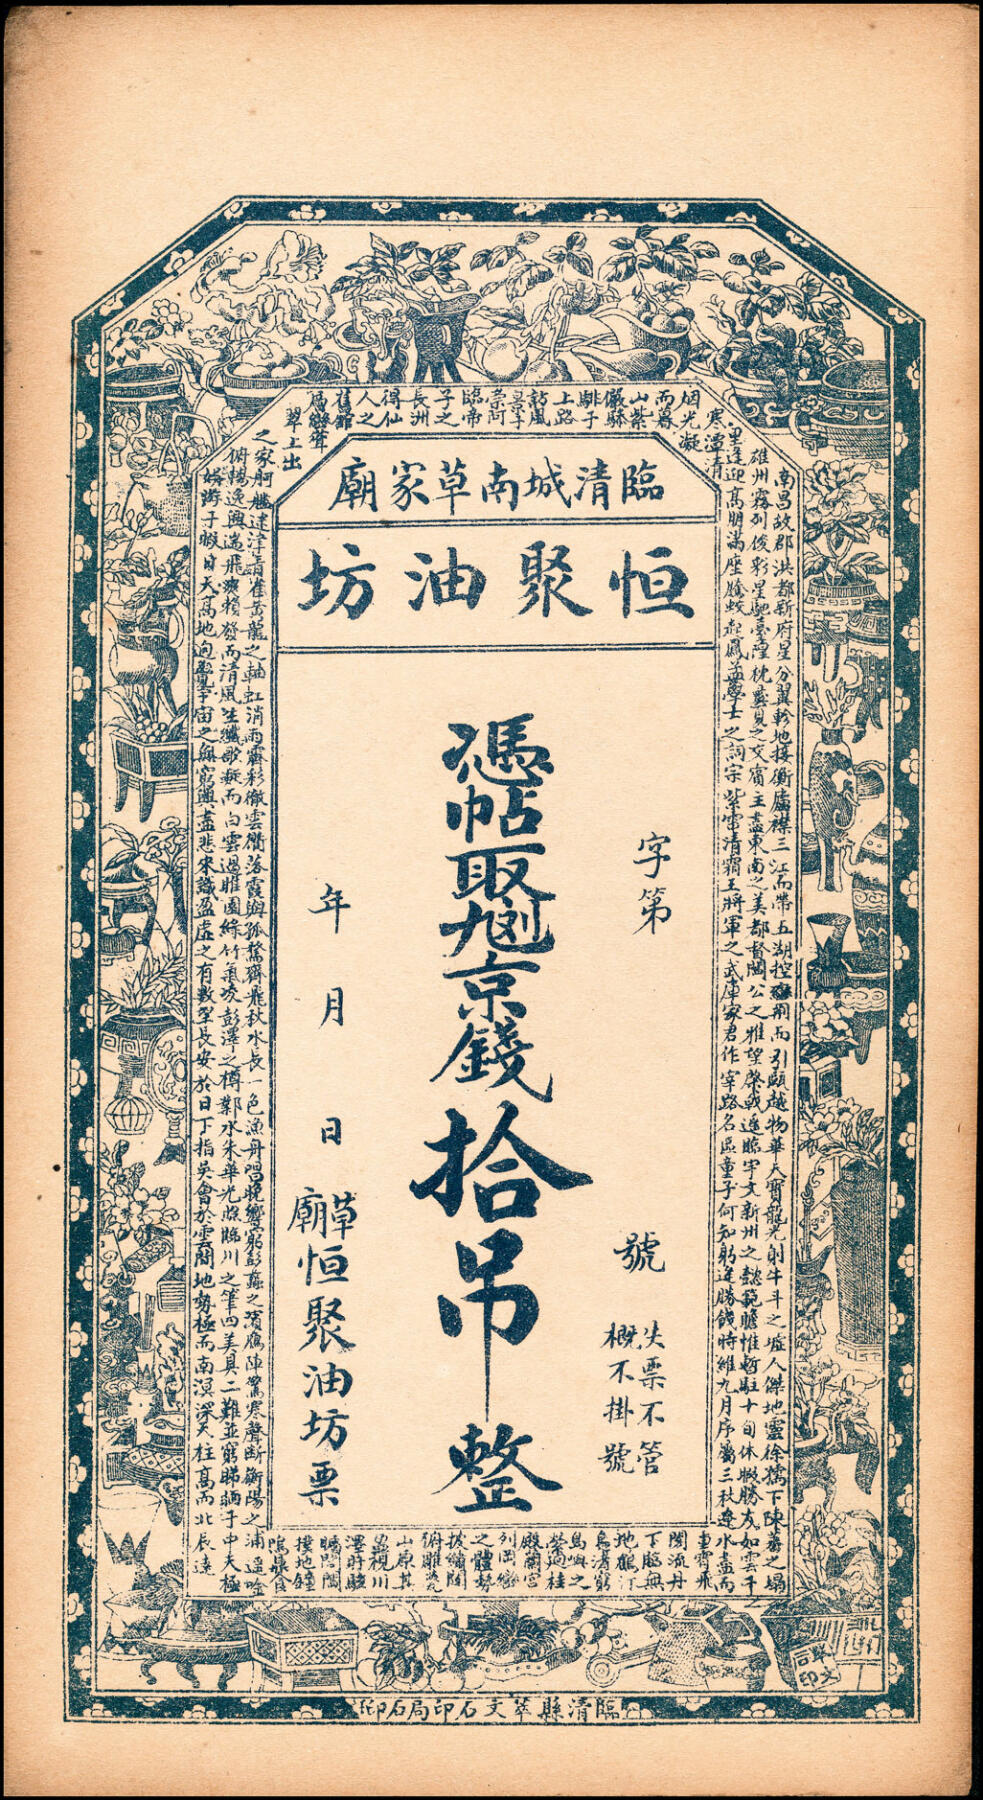 臨清城南草家廟
恒聚油坊
字第
號
失票不管
概不掛號
憑帖取九捌京錢拾吊整
年月日
草廟恒聚油坊票
南昌故郡洪都新府星分翼軫地接衡廬襟三江而帶五湖控蠻荊而引甌越物華天寶龍光射牛斗之墟人傑地靈徐孺下陳蕃之榻
雄州霧列俊彩星馳臺隍枕夷夏之交賓主盡東南之美都督閻公之雅望棨戟遙臨宇文新州之懿範襜帷暫駐十旬休暇勝友如雲千
里逢迎高朋滿座騰蛟起鳳孟學士之詞宗紫電清霜王將軍之武庫家君作宰路名區童子何知躬逢勝餞時維九月序屬三秋潦水盡而
寒潭清
烟光凝
而暮
山紫
儼驂
騑于
上路
訪風
景于
崇阿
臨帝
子之
長洲
得仙
人之
舊館
層巒聳
翠上出
重霄飛
閣流丹
下臨無
地鶴汀
鳧渚窮
島嶼之
縈迴桂
殿蘭宮
列岡巒
之體勢
披繡闥
俯雕甍
山原其
盈視川
澤盱駭
矚閭閻
撲地鐘
鳴鼎食
之家舸艦迷津青雀黃龍之軸虹消雨霽彩徹雲衢落霞與孤鶩齊飛秋水長一色漁舟唱晚響窮彭蠡之濱鴈陣驚寒聲斷衡陽之浦遥吟
俯暢逸興遄飛爽籟發而清風生纖歌凝而白雲遏睢園綠竹氣凌彭澤之樽鄴水朱華光照臨川之筆四美具二難並窮睇眄于中天極
娛遊于暇日天高地迥覺宇宙之無窮興盡悲來識盈虛之有數望長安於日下指吳會於雲間地勢極而南溟深天柱高而北辰遠
臨清縣萃文石印局石印